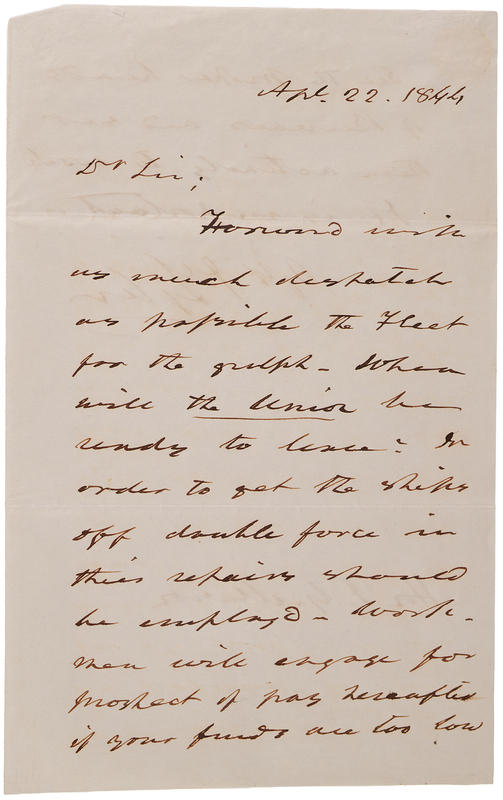 Apl. 22. 1844
Dr Sir;
Forward with
as much despatch
as possible the Fleet
for the gulph - When
will the Union be
ready to leave? In
order to get the ships
off double force in
their repairs should
be employ'd - Work-
men will engage for
prospect of pay hereafter
if your funds are too low